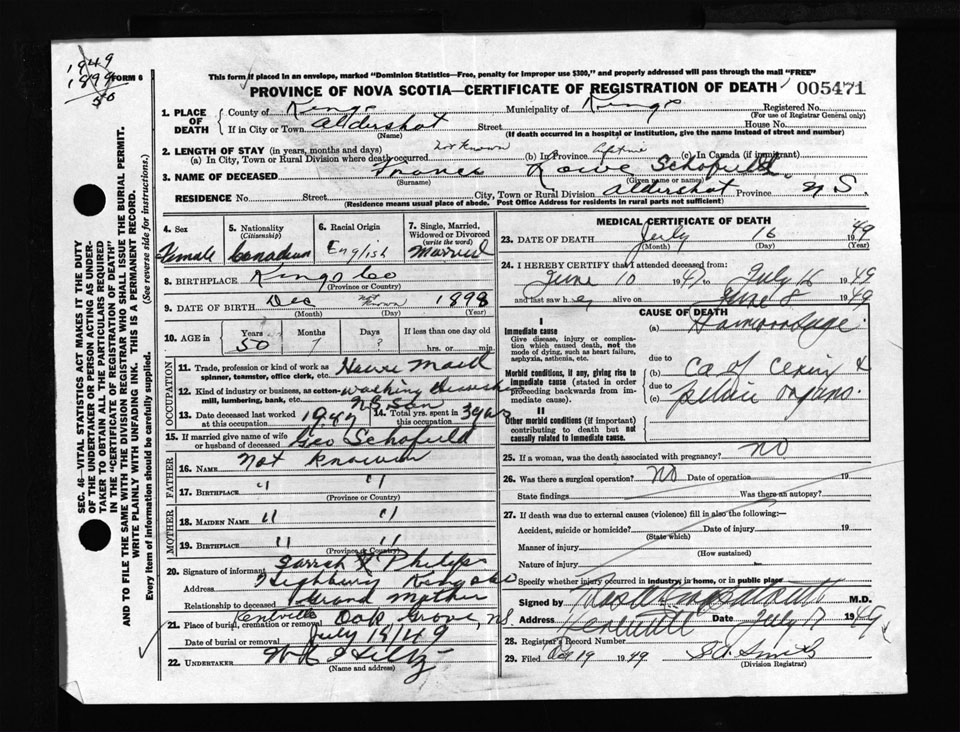 1949
1899
50
FORM 6
This form if placed in an envelope, marked "Dominion Statistics—Free, penalty for improper use $300," and properly addressed will pass through the mail "FREE"
PROVINCE OF NOVA SCOTIA—CERTIFICATE OF REGISTRATION OF DEATH 005471
1. PLACE OF DEATH
County of Kings Municipality of Kings Registered No.
(For use of Registrar General only)
If in City or Town Aldershot Street House No.
(Name) (If death occurred in a hospital or institution, give the name instead of street and number)
2. LENGTH OF STAY (in years, months and days)
(a) In City, Town or Rural Division where death occurred not known (b) In Province lifetime (c) In Canada (if immigrant)
3. NAME OF DECEASED Schofield
(Surname) (Given name or names)
RESIDENCE No. Street City, Town or Rural Division Aldershot Province N S.
(Residence means usual place of abode. Post Office Address for residents in rural parts not sufficient)
4. Sex Female
5. Nationality (Citizenship) Canadian
6. Racial Origin English
7. Single, Married, Widowed or Divorced (write the word) Married
8. BIRTHPLACE Kings Co
(Province or Country)
9. DATE OF BIRTH Dec not known 1898
(Month) (Day) (Year)
10. AGE in Years 50 Months 7 Days ? If less than one day old hrs. or min.
OCCUPATION
11. Trade, profession or kind of work as spinner, teamster, office clerk, etc. House Maid
12. Kind of industry or business, as cotton-mill, lumbering, bank, etc. washing
13. Date deceased last worked at this occupation 1947 14. Total yrs. spent in this occupation 3 years
15. If married give name of wife or husband of deceased Geo Schofield
FATHER
16. NAME Not known
17. BIRTHPLACE " "
(Province or Country)
MOTHER
18. MAIDEN NAME " "
19. BIRTHPLACE " "
(Province or Country)
20. Signature of informant Sarrah Philips
Address Highbury
Relationship to deceased Grand Mother
21. Place of burial, cremation or removal Kentville Oak Grove, N.S.
Date of burial or removal July 19/49
22. UNDERTAKER
(Name and address)
MEDICAL CERTIFICATE OF DEATH
23. DATE OF DEATH July 16 1949
(Month) (Day) (Year)
24. I HEREBY CERTIFY that I attended deceased from:
June 10 1947 to July 16 1949
and last saw her alive on June 8 1949
CAUSE OF DEATH
I
Immediate cause
Give disease, injury or complication which caused death, not the mode of dying, such as heart failure, asphyxia, asthenia, etc.
(a) Hamorrhage
due to
Morbid conditions, if any, giving rise to immediate cause (stated in order proceeding backwards from immediate cause).
(b) Ca of cervix &
due to
(c) pelvic organs.
II
Other morbid conditions (if important) contributing to death but not causally related to immediate cause.
25. If a woman, was the death associated with pregnancy? NO
26. Was there a surgical operation? NO Date of operation 19
State findings Was there an autopsy?
27. If death was due to external causes (violence) fill in also the following:
Accident, suicide or homicide? Date of injury 19
(State which)
Manner of injury
(How sustained)
Nature of injury
Specify whether injury occurred in industry, in home, or in public place
Signed by M.D.
Address Kentville Date July 17 1949
28. Registrar's Record Number
29. Filed 19 1949 Smith
(Division Registrar)
SEC. 46—VITAL STATISTICS ACT MAKES IT THE DUTY
OF THE UNDERTAKER OR PERSON ACTING AS UNDERTAKER TO OBTAIN ALL THE PARTICULARS REQUIRED
IN THE "CERTIFICATE OF REGISTRATION OF DEATH"
AND TO FILE THE SAME WITH THE DIVISION REGISTRAR WHO SHALL ISSUE THE BURIAL PERMIT.
WRITE PLAINLY WITH UNFADING INK. THIS IS A PERMANENT RECORD.
Every item of information should be carefully supplied. (See reverse side for instructions.)